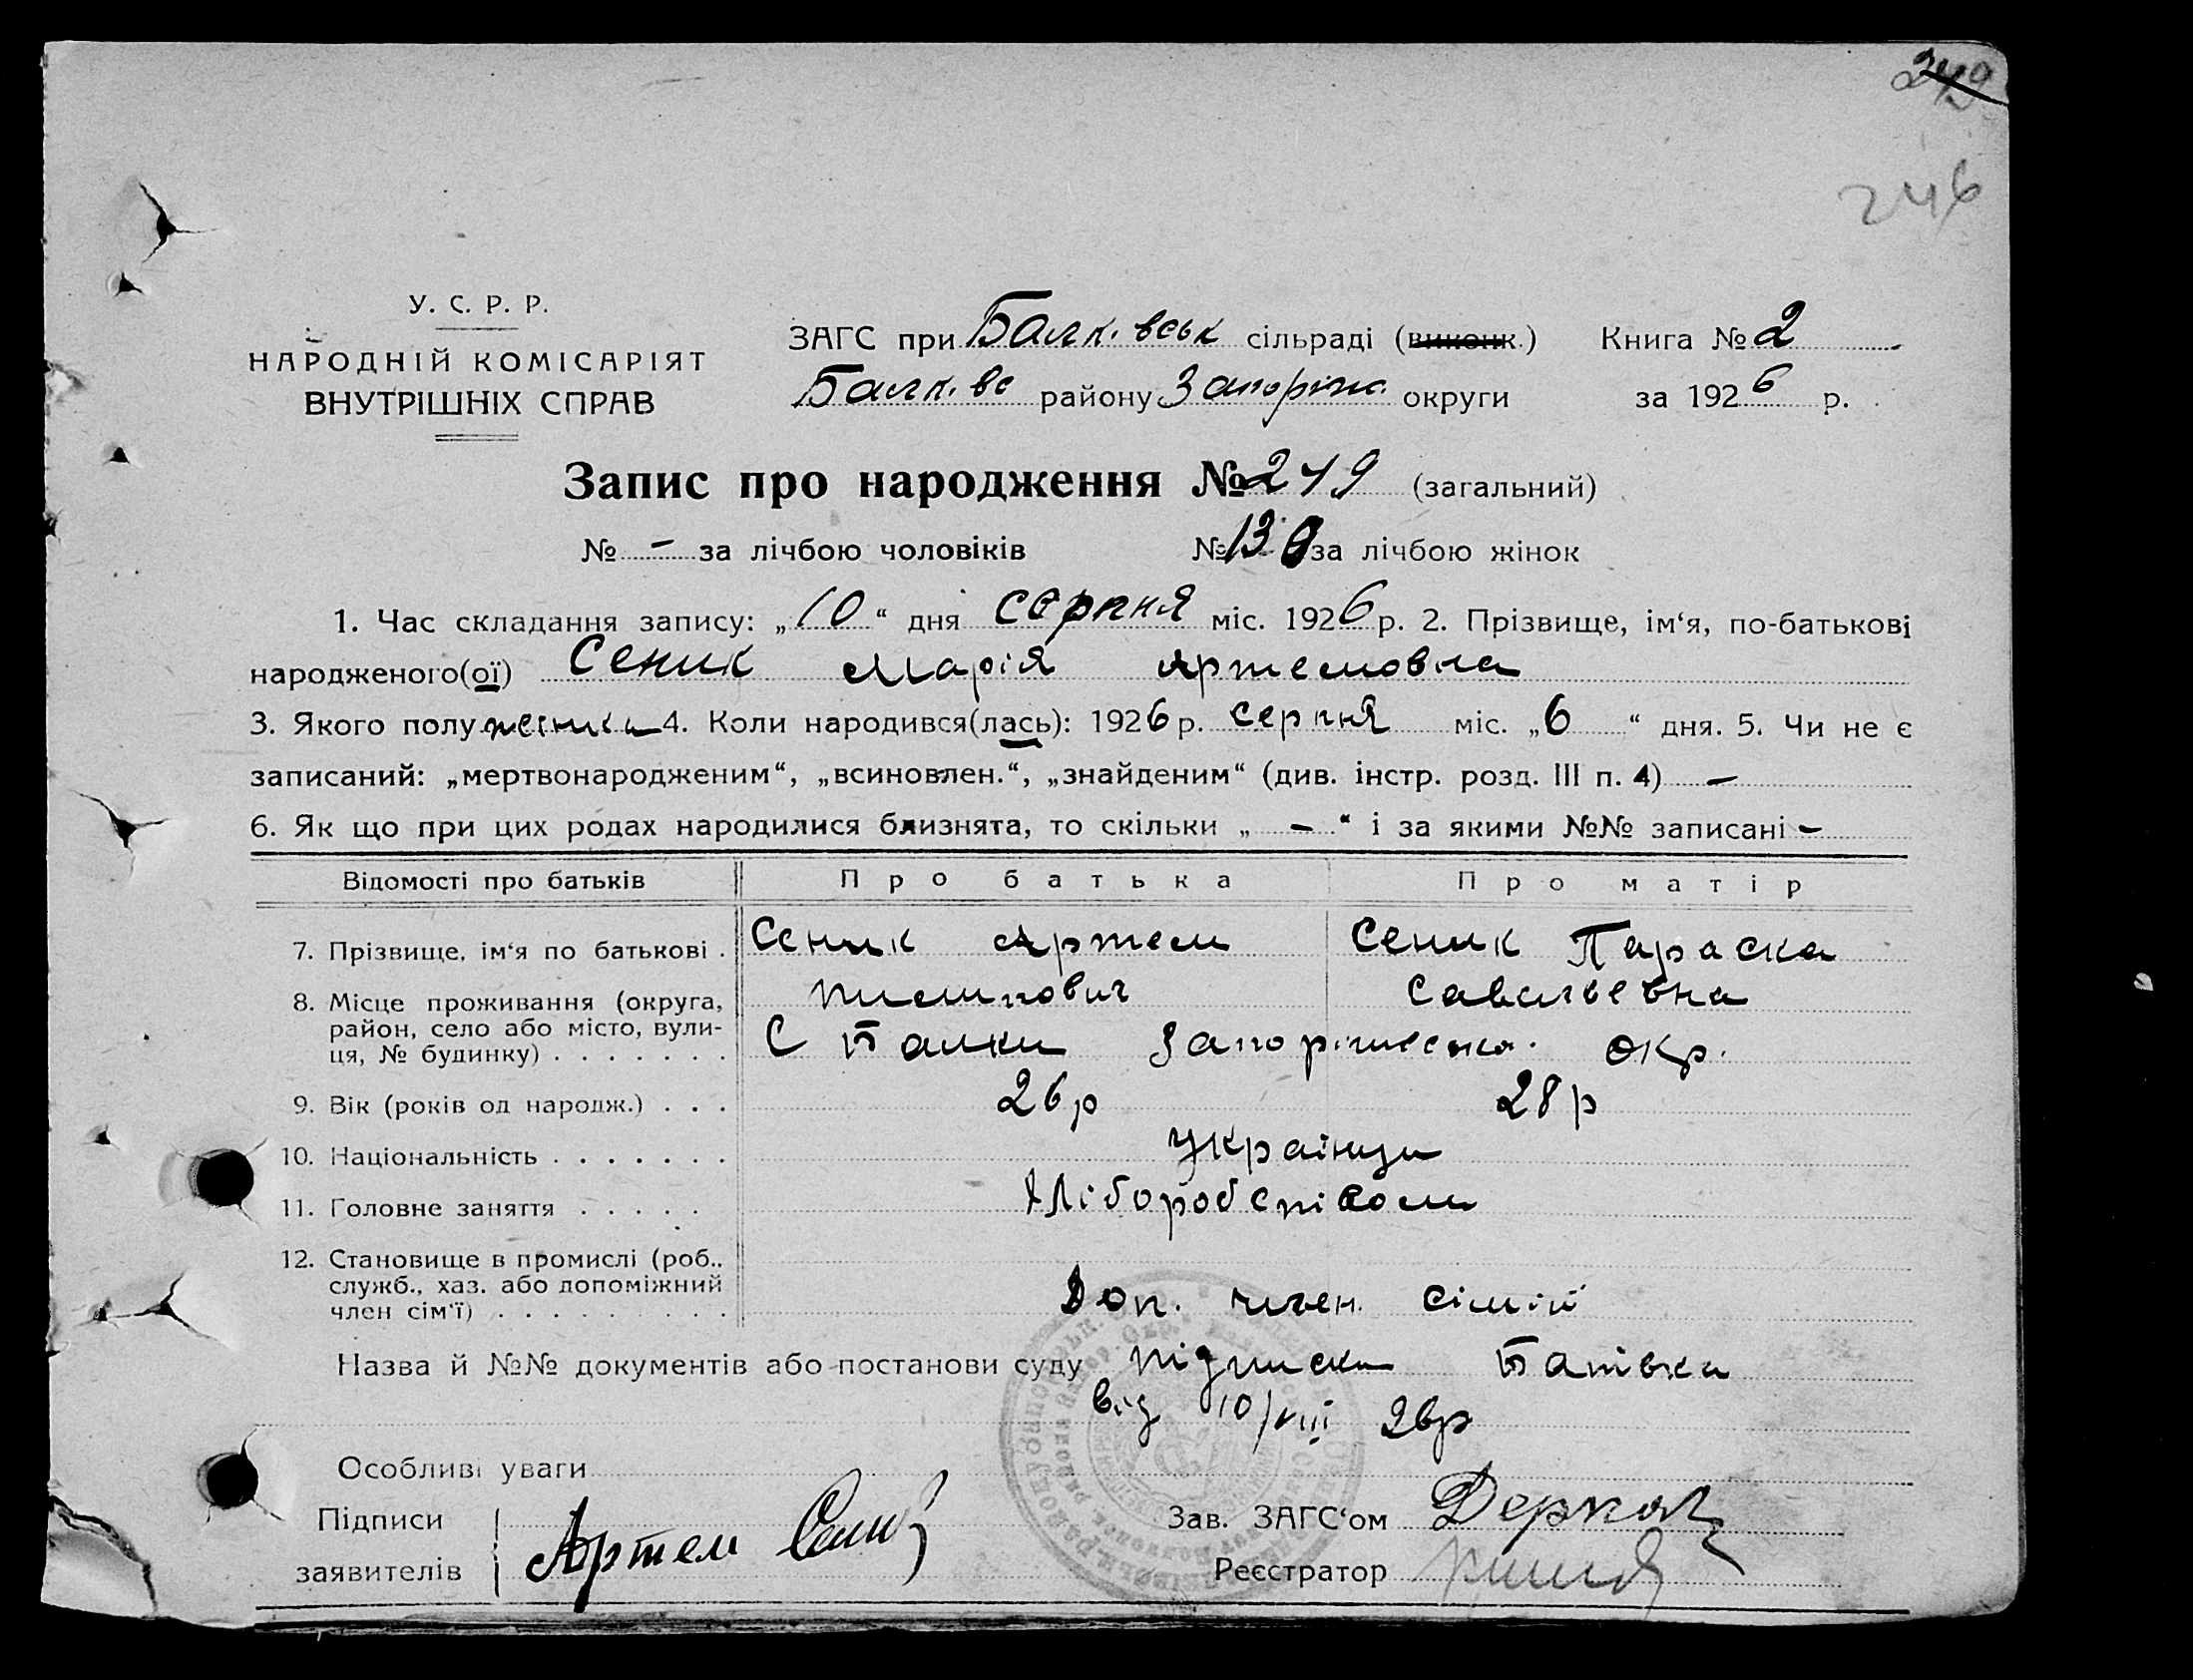 249
246
У. С. Р. Р.
НАРОДНІЙ КОМІСАРІЯТ
ВНУТРІШНІХ СПРАВ
ЗАГС при Балк. вськ сільраді (виконк.) Книга № 2
Балк. вс району Запоріж. округи за 1926 р.
Запис про народження № 249 (загальний)
№ - за лічбою чоловіків № 130 за лічбою жінок
1. Час складання запису: „10“ дня серпня міс. 1926 р. 2. Прізвище, ім‘я, по-батькові
народженого(ої) Сеник Марія Артемовна
3. Якого полу жіника 4. Коли народився(лась): 1926 р. серпня міс. „6“ дня. 5. Чи не є
записаний: „мертвонародженим“, „всиновлен.“, „знайденим“ (див. інстр. розд. III п. 4) -
6. Як що при цих родах народилися близнята, то скільки „ - “ і за якими №№ записані -
Відомості про батьків Про батька Про матір
7. Прізвище, ім‘я по батькові . Сеник Артем Сеник Параска
Пилипович Савельевна
8. Місце проживання (округа,
район, село або місто, вули-
ця, № будинку) . . . . . . . С Балки Запоріжська. окр.
9. Вік (років од народж.) . . . 26 р 28 р
10. Національність . . . . . . . українци
11. Головне заняття . . . . . Хлібороб
12. Становище в промислі (роб..
служб., хаз. або допоміжний
член сім‘ї) . . . . . . . . . Доп. член. сімії
Назва й №№ документів або постанови суду підписка Батівка
від 10/VIII 26р
Особливі уваги
Підписи
заявителів Артем Сеник
Зав. ЗАГС‘ом Деркач
Реєстратор